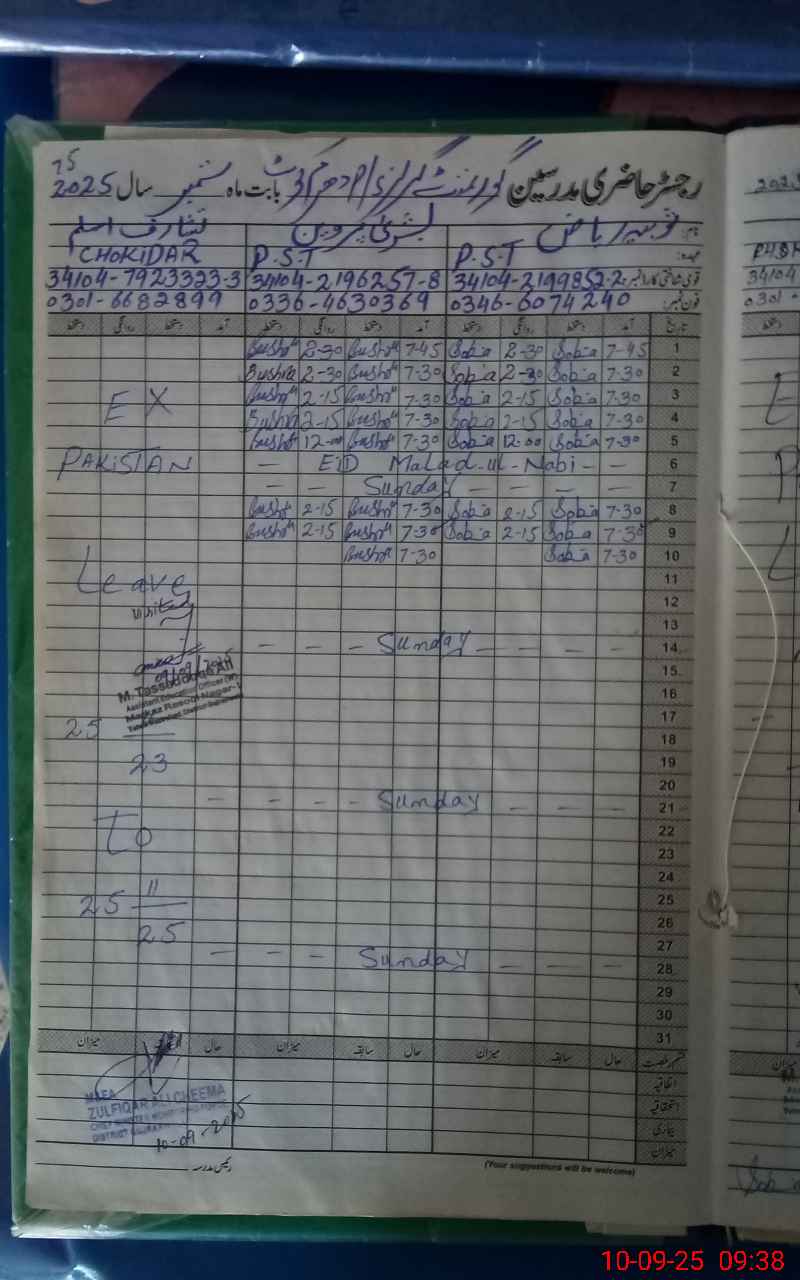 رجسٹر حاضری مدرسین گورنمنٹ گرلز بابت ماہ ستمبر سال 2025
ثوبیہ ریاض بشریٰ پروین اسلم
عہدہ: P.S.T P.S.T CHOKIDAR
قومی شناختی کارڈ نمبر: 34104-2199852-2 34104-2196257-8 34104-7923323-3
فون نمبر: 0346-6074240 0336-4630369 0301-6682899
تاریخ آمد دستخط روانگی دستخط آمد دستخط روانگی دستخط آمد دستخط روانگی دستخط
Bushra 2-30 Bushra 7-45 Sobia 2-30 Sobia 7-45 1
Bushra 2-30 Bushra 7-30 Sobia 2-30 Sobia 7-30 2
Bushra 2-15 Bushra 7-30 Sobia 2-15 Sobia 7-30 3
EX Bushra 2-15 Bushra 7-30 Sobia 2-15 Sobia 7-30 4
Bushra 12-00 Bushra 7-30 Sobia 12-00 Sobia 7-30 5
PAKISTAN — EID Malad-ul-Nabi — — 6
— — Sunday — — — — 7
Bushra 2-15 Bushra 7-30 Sobia 2-15 Sobia 7-30 8
Bushra 2-15 Bushra 7-30 Sobia 2-15 Sobia 7-30 9
Bushra 7-30 Sobia 7-30 10
Leave 11
12
13
— — — Sunday — — — 14
15
M. Tassadduq Ali
Assistant Education Officer (W)
Markaz Rasool Nagar-1
16
25 17
18
23 19
20
— — — — Sunday — — — 21
To 22
23
24
25 11 25
25 26
27
— — — Sunday — — — 28
29
30
31
قسم رخصت حال سابقہ میزان حال سابقہ میزان حال میزان
اتفاقیہ
استحقاقیہ
بیماری
میزان
MAEA
ZULFIQAR ALI CHEEMA
10-09-2025
رئیس مدرسہ
(Your suggestions will be welcome)
10-09-25 09:38